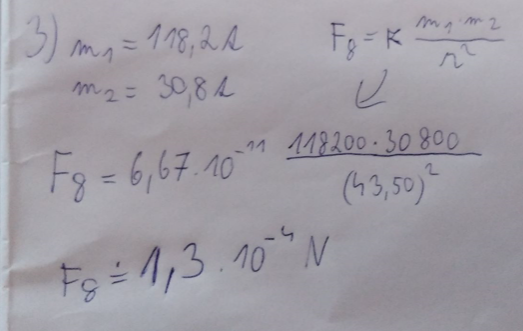 3) m₁ = 118,2t
Fg = ϰ m₁·m₂ / r²
m₂ = 30,8t
↙
Fg = 6,67·10⁻¹¹ 118200·30800 / (43,50)²
Fg ≐ 1,3·10⁻⁴ N